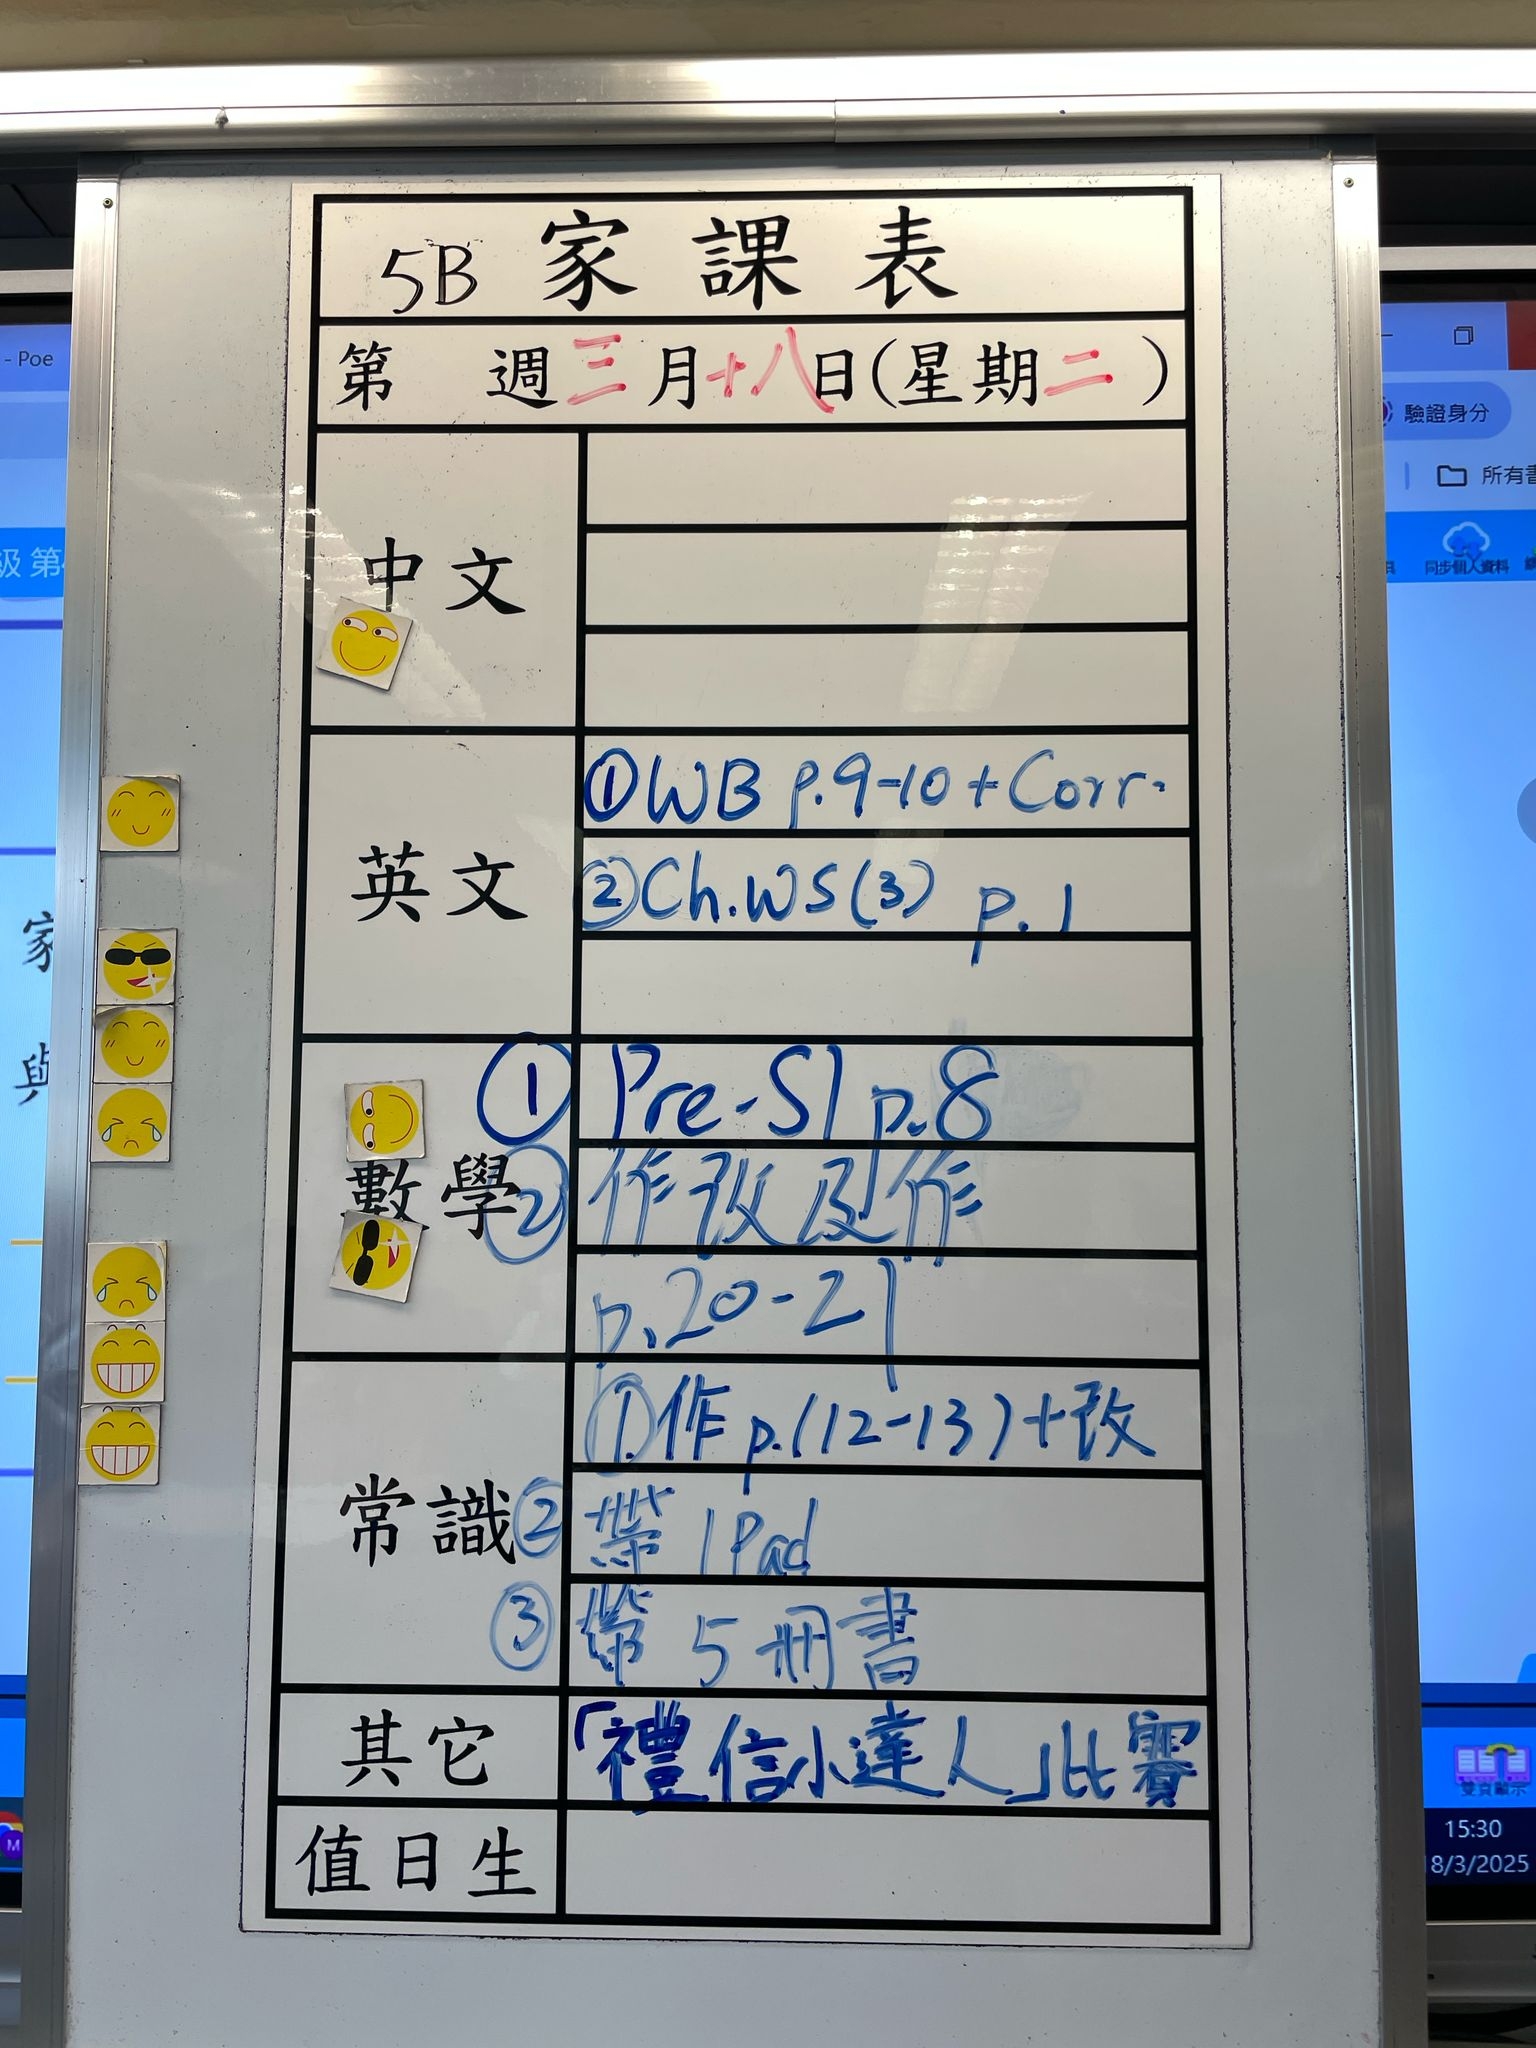 5B 家課表
第 週三月十八日(星期二)
中文
英文
①WB p.9-10 + Corr.
②Ch.WS(3) p.1
數學
① Pre-S1 p.8
② 作改及作
p.20-21
常識
①作 p.(12-13)+改
② 帶 IPad
③ 帶 5 冊書
其它
「禮信小達人」比賽
值日生
- Poe
級 第
家
與
驗證身分
所有書
同步個人資料
雙頁顯示
M
15:30
18/3/2025